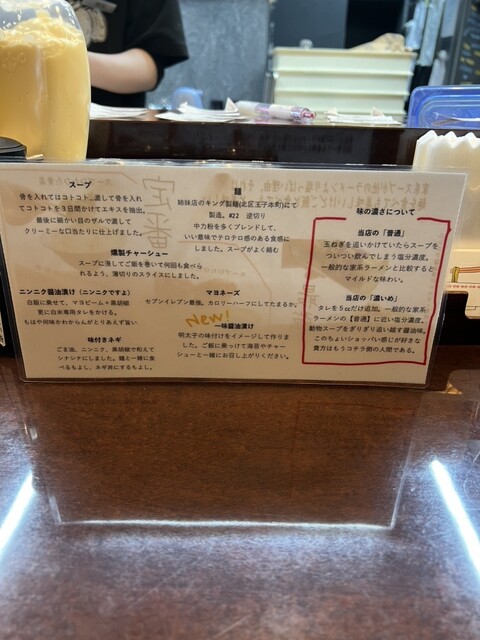 スープ
骨を入れてはコトコト…濃して骨を入れ
てコトコトを3日間かけてエキスを抽出。
最後に細かい目のザルで濃して
クリーミーな口当たりに仕上げました。
燻製チャーシュー
スープに浸してご飯を巻いて何回も食べら
れるよう、薄切りのスライスにしました。
ニンニク醤油漬け(ニンニクですよ)
白飯に乗せて、マヨビーム+黒胡椒
更に白米専用タレをかける。
もはや何味かわかんがとりあえず旨い
味付きネギ
ごま油、ニンニク、黒胡椒で和えて
シナシナにしました。麺と一緒に食
べるもよし、ネギ丼にするもよし。
麺
姉妹店のキング製麺(北区王子本町)にて
製造。#22 逆切り
中力粉を多くブレンドして、
いい意味でテロテロ感のある食感に
しました。スープがよく絡む
マヨネーズ
セブンイレブン最強。カロリーハーフにしてたまるか。
New!
一味醤油漬け
明太子の味付けをイメージして作りま
した。ご飯に乗っけて海苔やチャー
シューと一緒にお召し上がりください。
味の濃さについて
当店の「普通」
玉ねぎを追いかけていたらスープを
ついつい飲んでしまう塩分濃度。
一般的な家系ラーメンと比較すると
マイルドな味わい。
当店の「濃いめ」
タレを5ccだけ追加。一般的な家系
ラーメンの【普通】に近い塩分濃度。
動物スープをぎりぎり追い越す醤油味。
このちょいショッパい感じが好きな
貴方はもうコチラ側の人間である。